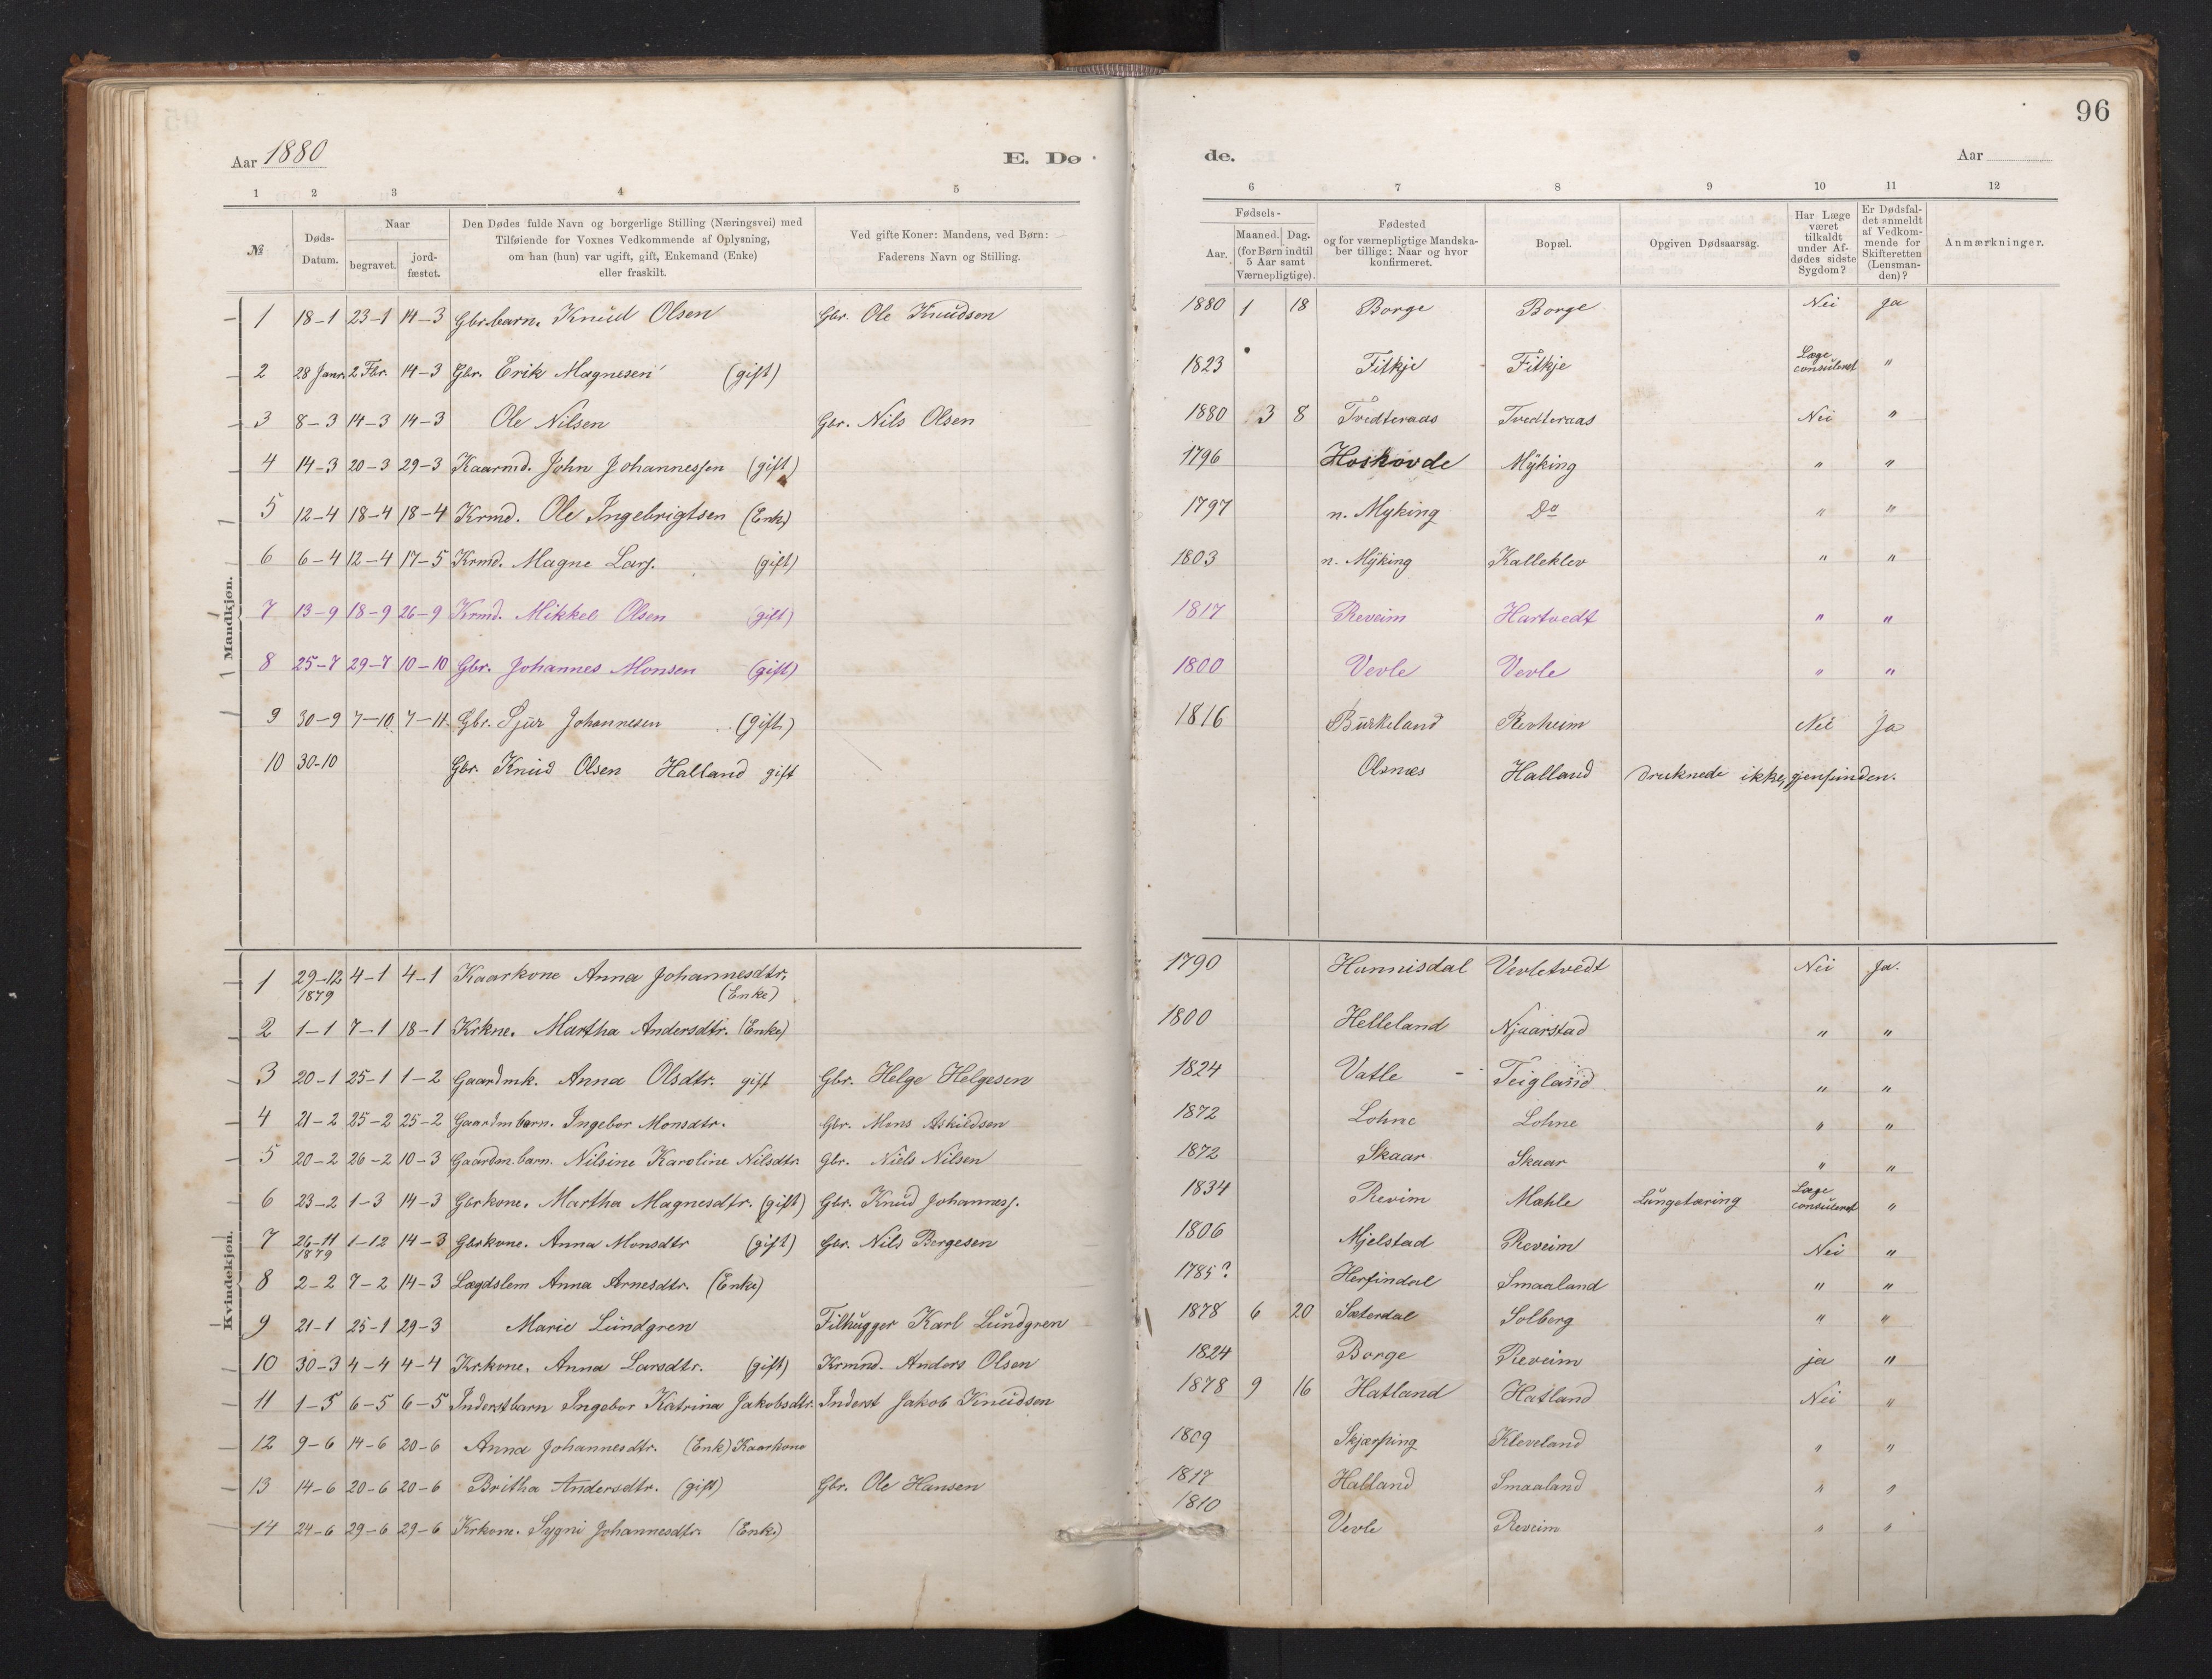 96
Aar 1880 E. Dø de. Aar
1 2 3 4 5 6 7 8 9 10 11 12
№
Døds-Datum.
Naar
begravet.
jord-fæstet.
Den Dødes fulde Navn og borgerlige Stilling (Næringsvei) med
Tilføiende for Voxnes Vedkommende af Oplysning,
om han (hun) var ugift, gift, Enkemand (Enke)
eller fraskilt.
Ved gifte Koner: Mandens, ved Børn:
Faderens Navn og Stilling.
Fødsels-
Aar.
Maaned. Dag.
(for Børn indtil
5 Aar samt
Værnepligtige).
Fødested
og for værnepligtige Mandska-
ber tillige: Naar og hvor
konfirmeret.
Bopæl.
Opgiven Dødsaarsag.
Har Læge
været
tilkaldt
under Af-
dødes sidste
Sygdom?
Er Dødsfal-
det anmeldt
af Vedkom-
mende for
Skifteretten
(Lensman-
den)?
Anmærkninger.
Mandkjøn.
1 18-1 23-1 14-3 Gbr.barn. Knud Olsen Gbr. Ole Knudsen 1880 1 18 Borge Borge Nei Ja
2 28 Janr. 2 Fbr. 14-3 Gbr. Erik Magnesen (gift) 1823 Fitkje Fitkje Læge consuleret "
3 8-3 14-3 14-3 Ole Nilsen Gbr. Nils Olsen 1880 3 8 Tvedteraas Tvedteraas Nei "
4 14-3 20-3 29-3 Kaarmd. John Johannessen (gift) 1796 Hoskovde Mÿking " "
5 12-4 18-4 18-4 Krmd. Ole Ingebrigtsen (Enk) 1797 n. Myking Do " "
6 6-4 12-4 17-5 Krmd. Magne Lars. (gift) 1803 n. Mÿking Kalleklev " "
7 13-9 18-9 26-9 Krmd. Mikkel Olsen (gift) 1817 Reveim Hartvedt " "
8 25-7 29-7 10-10 Gbr. Johannes Monsen (gift) 1800 Vevle Vevle " "
9 30-9 7-10 7-11 Gbr. Sjur Johannesen (gift) 1816 Burkeland Revheim Nei Ja
10 30-10 Gbr. Knud Olsen Halland gift Olsnes Halland Druknede ikke gjenfunden.
Kvindekjøn.
1 29-12 1879 4-1 4-1 Kaarkone Anna Johannesdtr. (Enke) 1790 Hannisdal Vevletvedt Nei Ja.
2 1-1 7-1 18-1 Krkne. Martha Andersdtr. (Enke) 1800 Helleland Njaarstad " "
3 20-1 25-1 1-2 Gaardmk. Anna Olsdtr. gift Gbr. Helge Helgesen 1824 Vatle - Teigland " "
4 21-2 25-2 25-2 Gaardmbarn. Ingebor Monsdtr. Gbr. Mons Askildsen 1872 Lohne Lohne " "
5 20-2 26-2 10-3 Gaardm.barn. Nilsine Karoline Nilsdtr Gbr. Niels Nilsen 1872 Skaar Skaar " "
6 23-2 1-3 14-3 Gbrkone. Martha Magnesdtr. (gift) Gbr. Knud Johanness. 1834 Revim Mæhle Lungetæring Læge consuleret "
7 26-11 1879 1-12 14-3 Gbrkone. Anna Monsdtr (gift) Gbr. Nils Børgesen 1806 Mjelstad Reveim Nei "
8 2-2 7-2 14-3 Lægdslem Anna Arnesdtr. (Enke) 1785? Herfindal Smaaland " "
9 21-1 25-1 29-3 Marie Lundgren Filhugger Karl Lundgren 1878 6 20 Sæterdal Solberg " "
10 30-3 4-4 4-4 Kr.kone. Anna Larsdtr. (gift) Krmnd. Anders Olsen 1824 Borge Reveim ja "
11 1-5 6-5 6-5 Inderstbarn Ingebor Katrina Jakobsdtr. Inderst Jakob Knudsen 1878 9 16 Hatland Hatland Nei "
12 9-6 14-6 20-6 Anna Johannesdtr. (Enk) Kaarkone 1809 Skjærping Kleveland " "
13 14-6 20-6 20-6 Britha Andersdtr. (gift) Gbr. Ole Hansen 1817 Halland Smaaland " "
14 24-6 29-6 29-6 Krkone. Sygni Johannesdtr. (Enke) 1810 Vevle Reveim " "